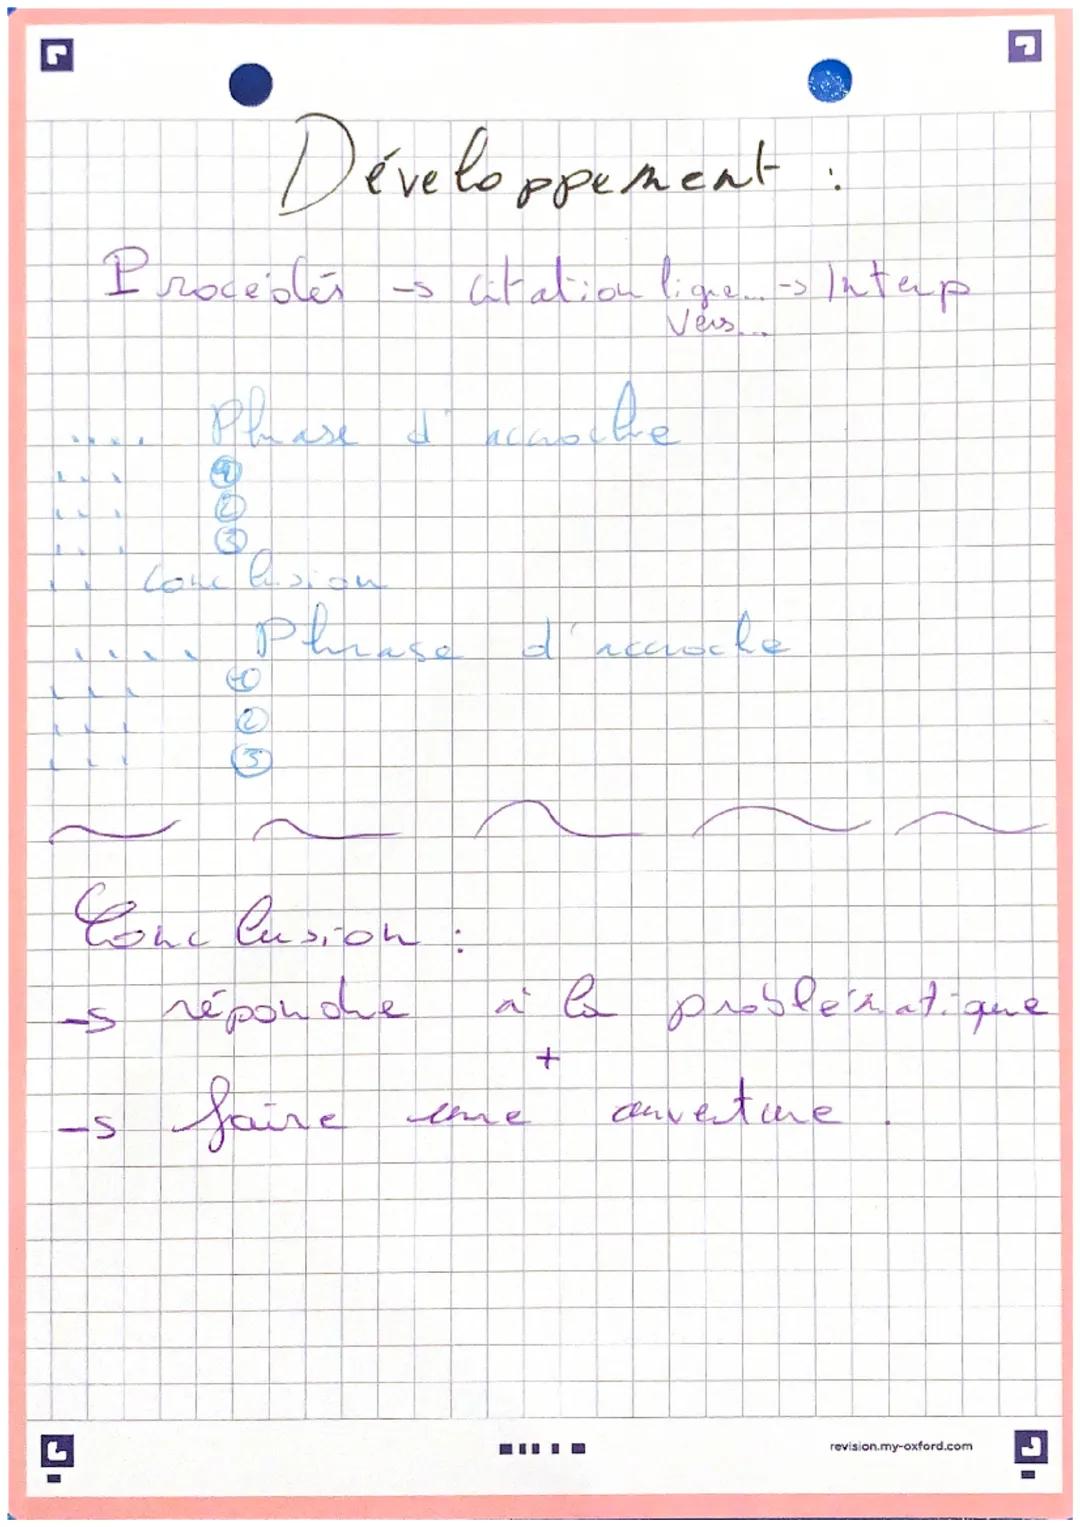 Développement :
Procédés -> citation ligne... -> Interp
Vers...
.... Phrase d'accroche
... ①
... ②
... ③
.. Conclusion
.... Phrase d'accroche
... ①
... ②
... ③
Conclusion :
-> répondre à la problématique
+
-> faire une ouverture.
revision.my-oxford.com